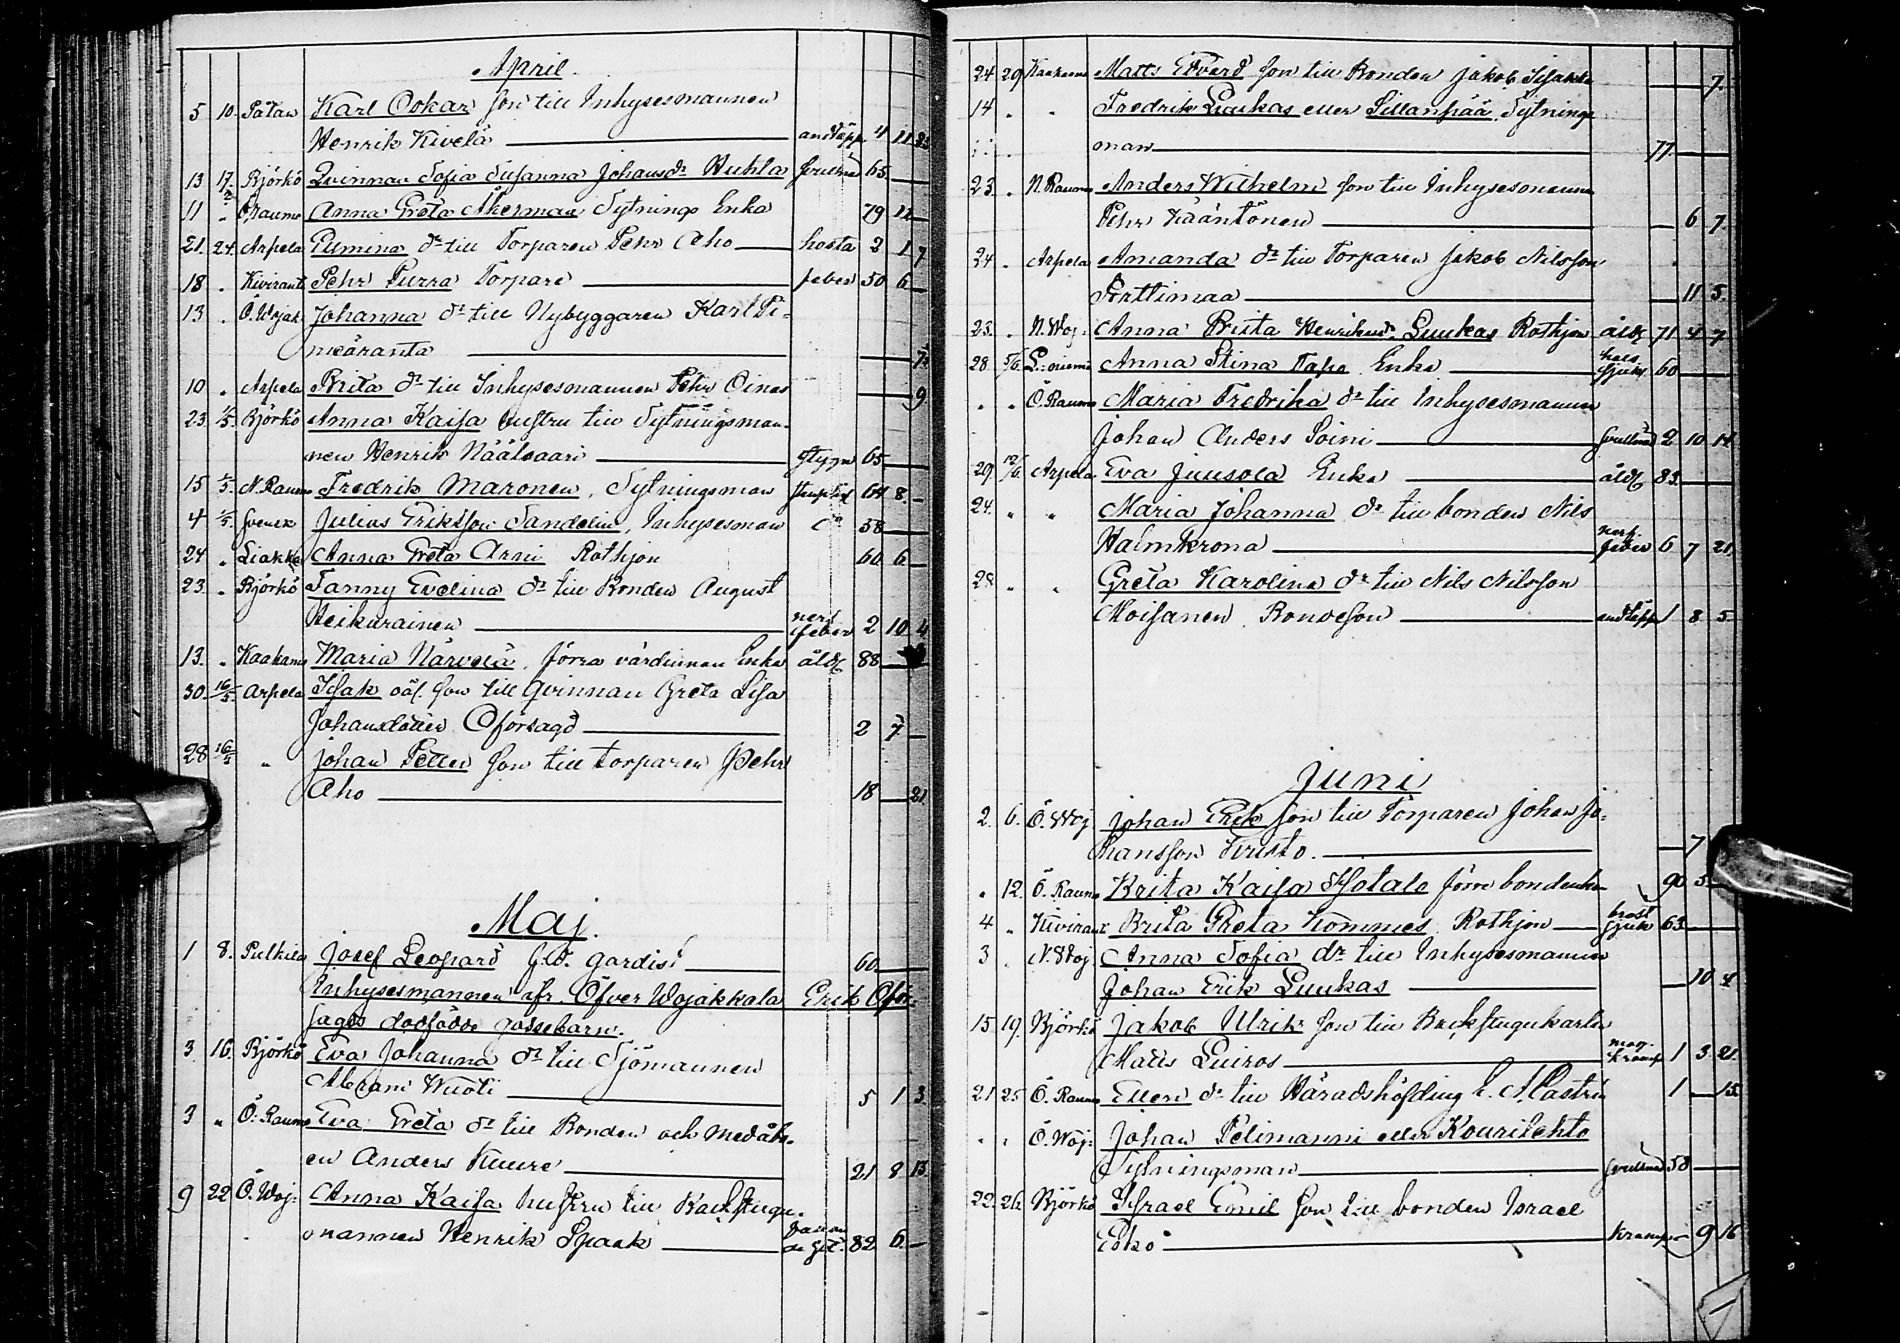 April.
5 10. Karl Oskar son till Inhysesmannen
Henrik Kivelä andtäpp 4 11
13 17. Björkö Qvinnan Sofia Susanna Johansdr Huhta 65
11 " Ö Raumo Anna Greta Åkerman Sytnings Enka 79 12
21. 24. Arpela dr till Torparen Pehr Aho hosta 2 1 7
18 . Kivirant Pehr Purra Torpare feber 50 6
13 . Ö. Wojak Johanna dr till Nybyggaren Karl
10 . Arpela Brita dr till Inhysesmannen Pehr Oinas 9
23. 1/5. Björkö Anna Kaisa hustru till Sytningsman-
nen Henrik Näätsaari styng 65
15 1/5. N. Raumo Fredrik Maronen, Sytningsman 64 8
4 1/5. Julius Eriksson Sandelin, Inhysesman do 58
24 " Liakka Anna Greta Arni Rothjon 60 6
23. " Björkö Fanny Evelina dr till Bonden August
Heikurainen nerf feber 2 10 4
13. " Kaakamo Maria förra värdinnan Enka åldg 88
30. 16/5 Arpela Isak oäk. son till Qvinnan Greta Lisa
Johansdotter Oförsagd 2 7
28 16/5 " Johan Petter son till torparen Pehr
Aho 18 21
Maj.
1 8. Josef Leopard f.d. gardist 60
Inhysesmannen ifr. Öfver Wojakkala Erik Oför-
sagds dödfödde gossebarn.
3 16. Björkö Eva Johanna dr till Sjömannen
Abram Wuoti 5 1 3.
3 " Ö. Raumo Eva Greta dr till Bonden och
en Anders Kuure 21 8 13
9 22 Ö. Woj: Anna Kaisa hustru till Backstugu-
mannen Henrik Spaak 82 6.
24 29 Kaakamo Matts Edvard son till Bonden Jakob 7.
14 " " Fredrik Luukas eller Sillanpää Sytnings
man 77
23. " N. Raumo Anders Wilhelm son till Inhysesmannen
Pehr Kääntönen 6 7.
24. . Arpela Amanda dr till Torparen Jakob Nilsson
Porttimaa 11 5.
23. . N. Woj. Anna Brita Henriksdr Luukas Rothjon åldg 71 4 7
28 5/6. Anna Stina Enka hals sjukd 60
. . Ö. Raumo Maria Fredrika dr till Inhysesmannen
Johan Anders Soini 2 10 14
29. 12/6 Arpela Eva Juusola Enka åldg 83
24. " " Maria Johanna dr till bonden Nils
Halmkrona nerf feber 6 7 21.
28 " " Greta Karolina dr till Nils Nilsson
Moisanen Bondeson andtäpp 1 8 5.
Juni
2. 6. Ö. Woj Johan Erik son till Torparen Johan Jo-
hansson Kristo. 7
. 12. Ö. Raumo Brita Kaisa förre 90 5
4 " Kivirant Brita Greta Rothjon bröst sjuk 63
3 . N. Woj Anna Sofia dr till Inhysesmannen
Johan Erik Luukas 10 4
15 19. Björkö Jakob Ulrik son till Backstugukarlen
Matts Luiros mag-kramp 1 3 21.
21 25 Ö. Raumo Ellen dr till Häradshöfding 1 15
" " Ö. Woj: Johan Pelimanni eller Kourilehto
Sytningsman 58
22. 26. Björkö Israel Emil son till bonden Israel
Esko kramp 9 16